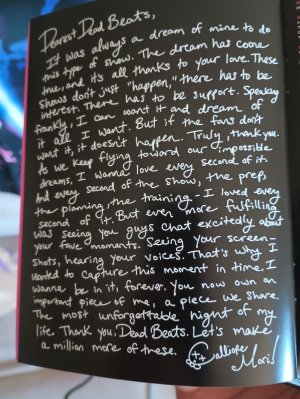 Dearest Dead Beats,
It was always a dream of mine to do
this type of show. The dream has come
true, and it's all thanks to your love. These
shows don't just "happen," there has to be
interest. There has to be support. Speaking
frankly, I can want it and dream of
it all I want. But if the fans don't
want it, it doesn't happen. Truly, thank you.
As we keep flying toward our impossible
dreams, I wanna love every second of it.
And every second of the show, the prep,
the planning, the training - I loved every
second of it. But even more fulfilling
was seeing you guys chat excitedly about
your fave moments. Seeing your screen-
shots, hearing your voices. That's why I
wanted to capture this moment in time. I
wanna be in it, forever. You now own an
important piece of me, a piece we share.
The most unforgettable night of my
life. Thank you, Dead Beats. Let's make
a million more of these. Calliope
Mori!